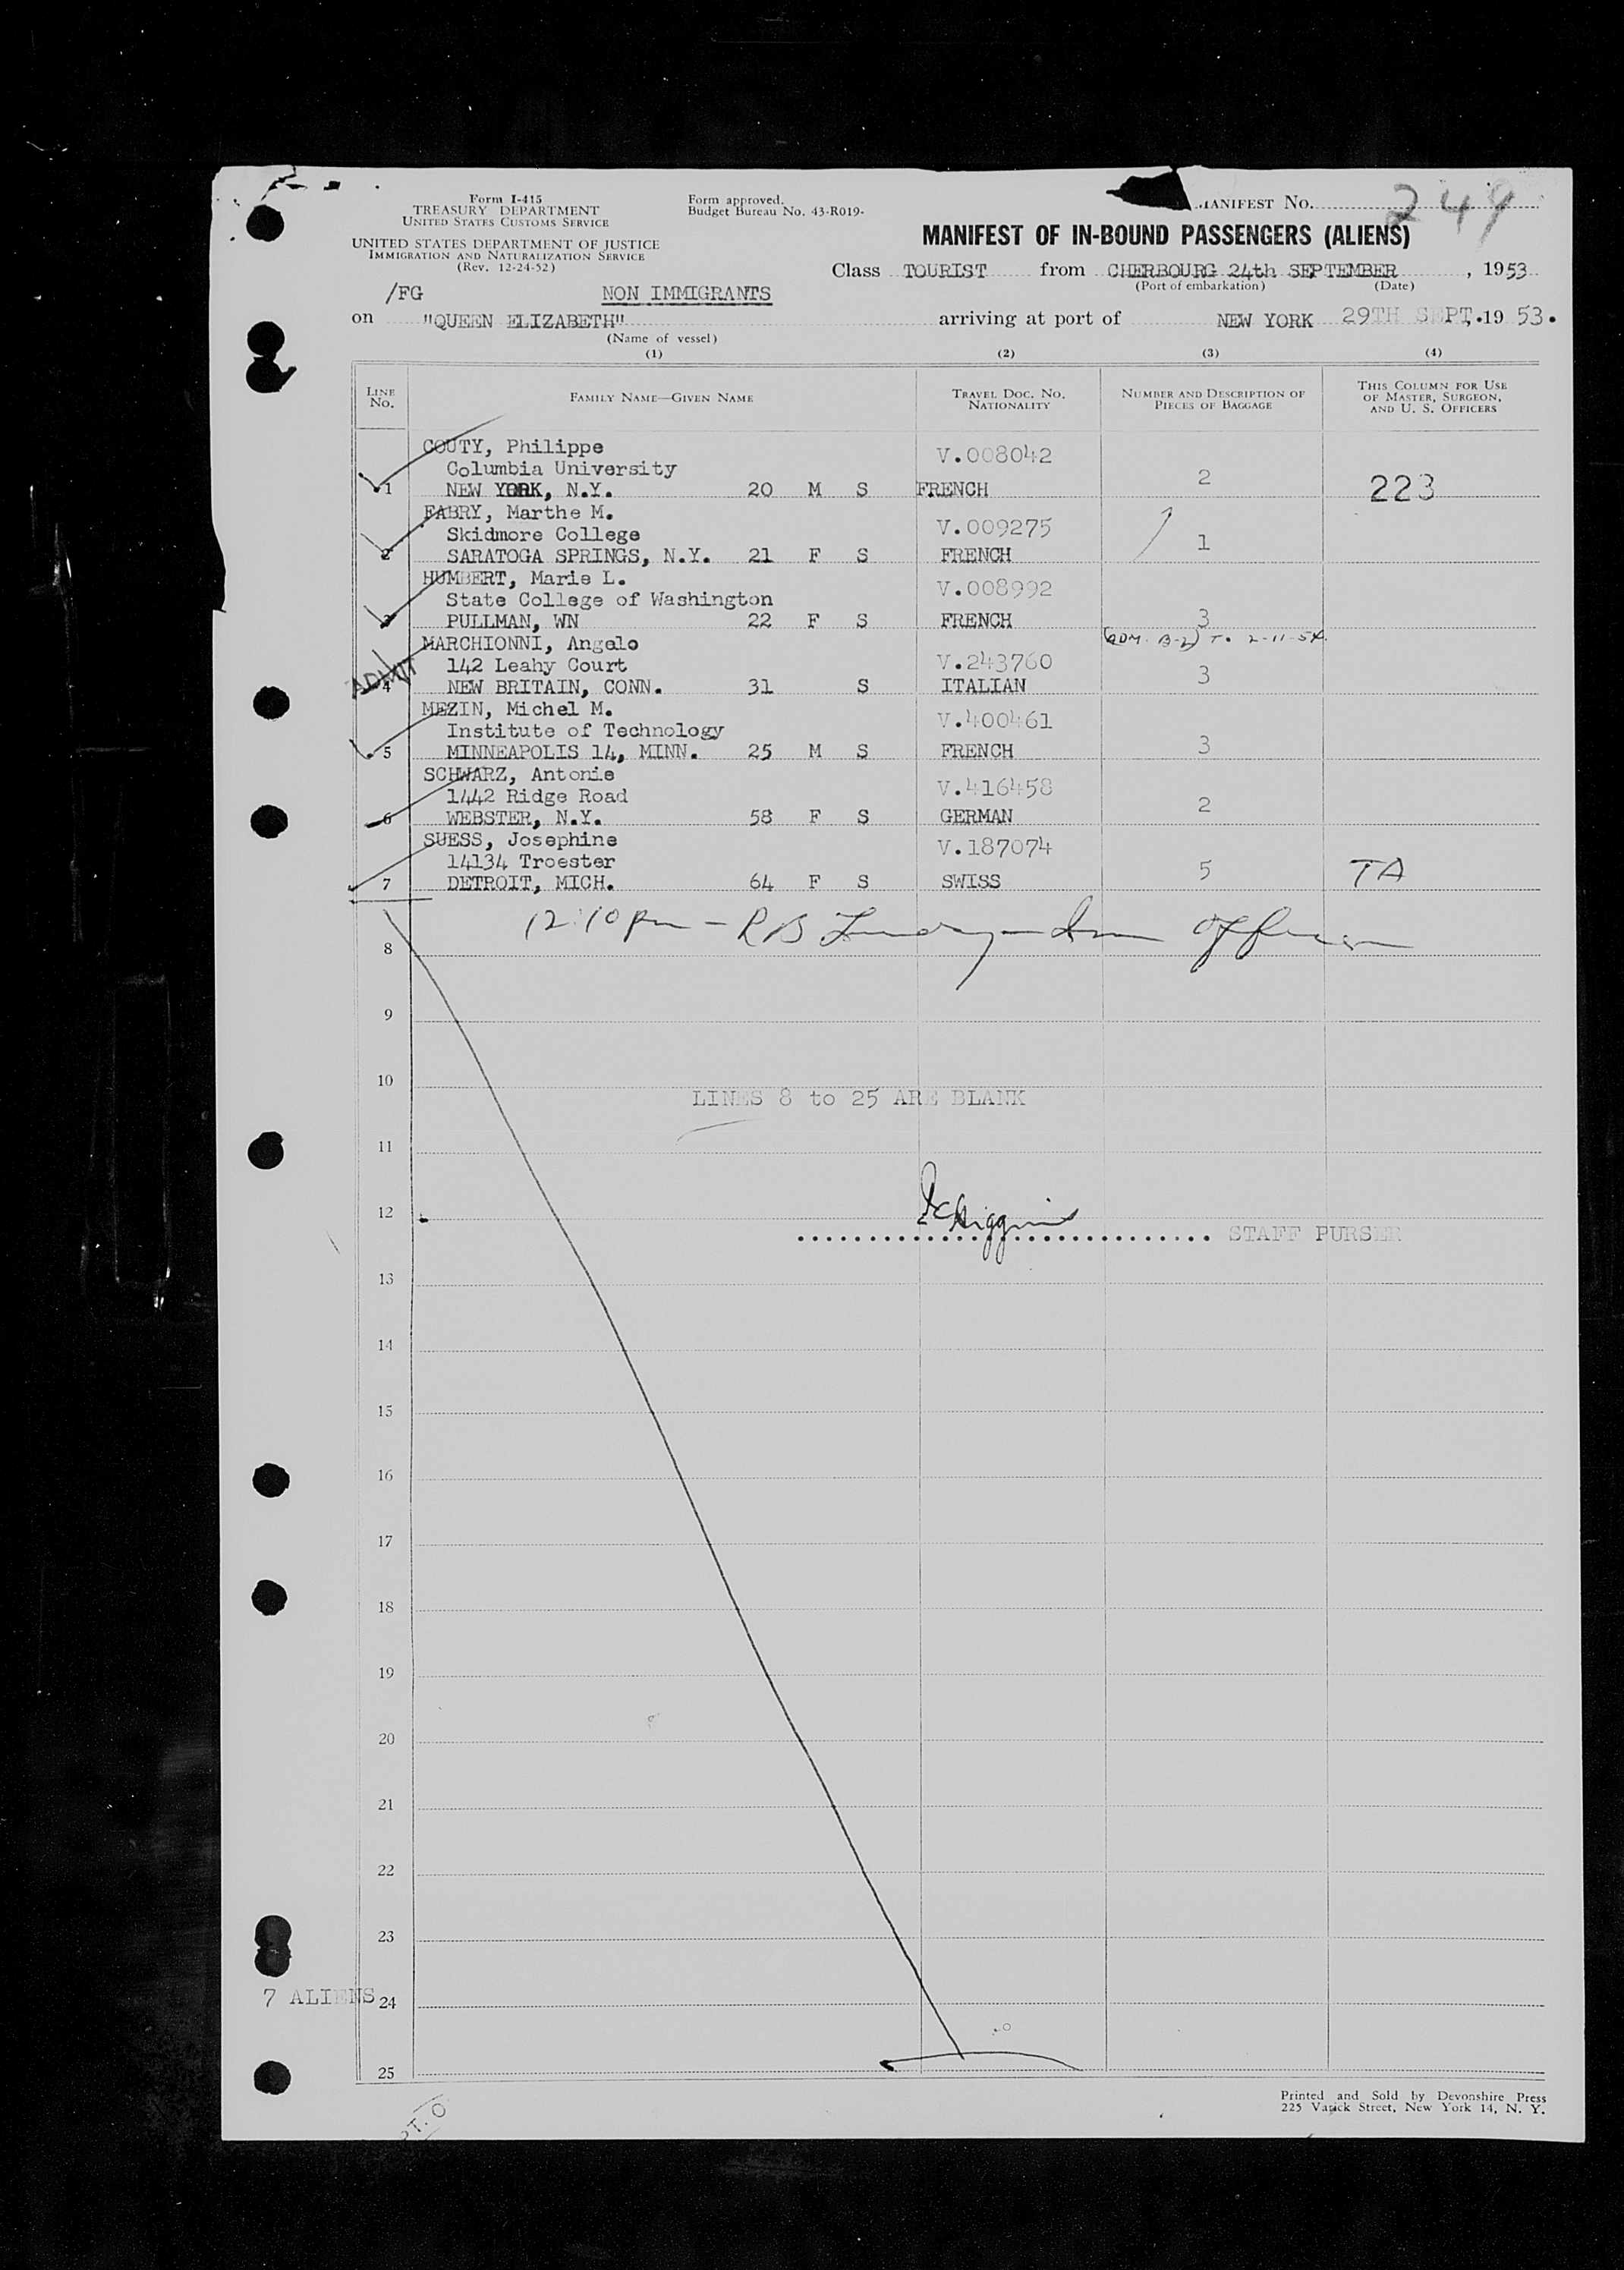 Form I-415
TREASURY DEPARTMENT
UNITED STATES CUSTOMS SERVICE
UNITED STATES DEPARTMENT OF JUSTICE
IMMIGRATION AND NATURALIZATION SERVICE
(Rev. 12-24-52)
Form approved.
Budget Bureau No. 43-R019-
MANIFEST NO. 249
MANIFEST OF IN-BOUND PASSENGERS (ALIENS)
Class TOURIST from CHERBOURG 24th SEPTEMBER, 1953
(Port of embarkation) (Date)
/FG NON IMMIGRANTS
on "QUEEN ELIZABETH" arriving at port of NEW YORK 29TH SEPT.1953.
(Name of vessel)
(1) (2) (3) (4)
LINE NO. FAMILY NAME—GIVEN NAME TRAVEL DOC. NO. NATIONALITY NUMBER AND DESCRIPTION OF PIECES OF BAGGAGE THIS COLUMN FOR USE OF MASTER, SURGEON, AND U. S. OFFICERS
COUTY, Philippe V.008042
Columbia University
1 NEW YORK, N.Y. 20 M S FRENCH 2 223
FABRY, Marthe M. V.009275
Skidmore College
2 SARATOGA SPRINGS, N.Y. 21 F S FRENCH 1
HUMBERT, Marie L. V.008992
State College of Washington
3 PULLMAN, WN 22 F S FRENCH 3
MARCHIONNI, Angelo (ADM. B-2) T. 2-11-54
142 Leahy Court V.243760
ADMIT 4 NEW BRITAIN, CONN. 31 S ITALIAN 3
MEZIN, Michel M. V.400461
Institute of Technology
5 MINNEAPOLIS 14, MINN. 25 M S FRENCH 3
SCHWARZ, Antonie V.416458
1442 Ridge Road
6 WEBSTER, N.Y. 58 F S GERMAN 2
SUESS, Josephine V.187074
14134 Troester
7 DETROIT, MICH. 64 F S SWISS 5 TA
12:10 pm - RB Imm Officer
8
9
10
LINES 8 to 25 ARE BLANK
11
12
Higgins STAFF PURSER
13
14
15
16
17
18
19
20
21
22
23
7 ALIENS 24
25
Printed and Sold by Devonshire Press
225 Varick Street, New York 14, N. Y.